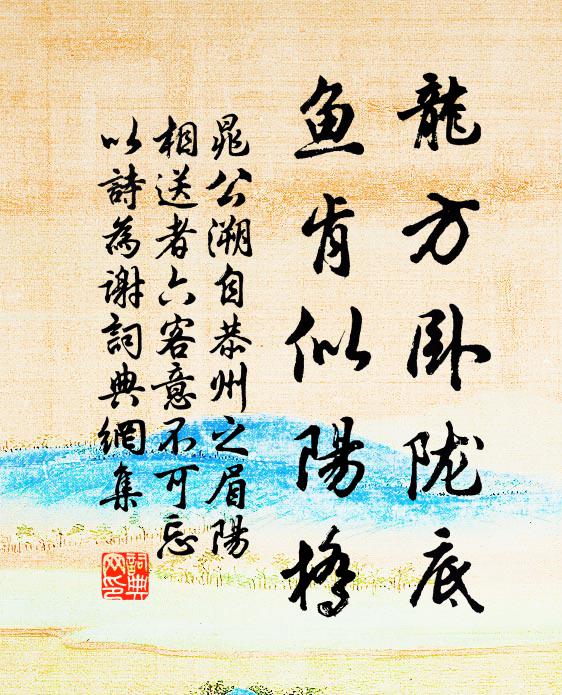 龍方卧陇底
魚肯似陽橋
晁公溯自恭州之眉陽
相送者六客意不可忘
以詩為謝詞典網集
詞典
网印